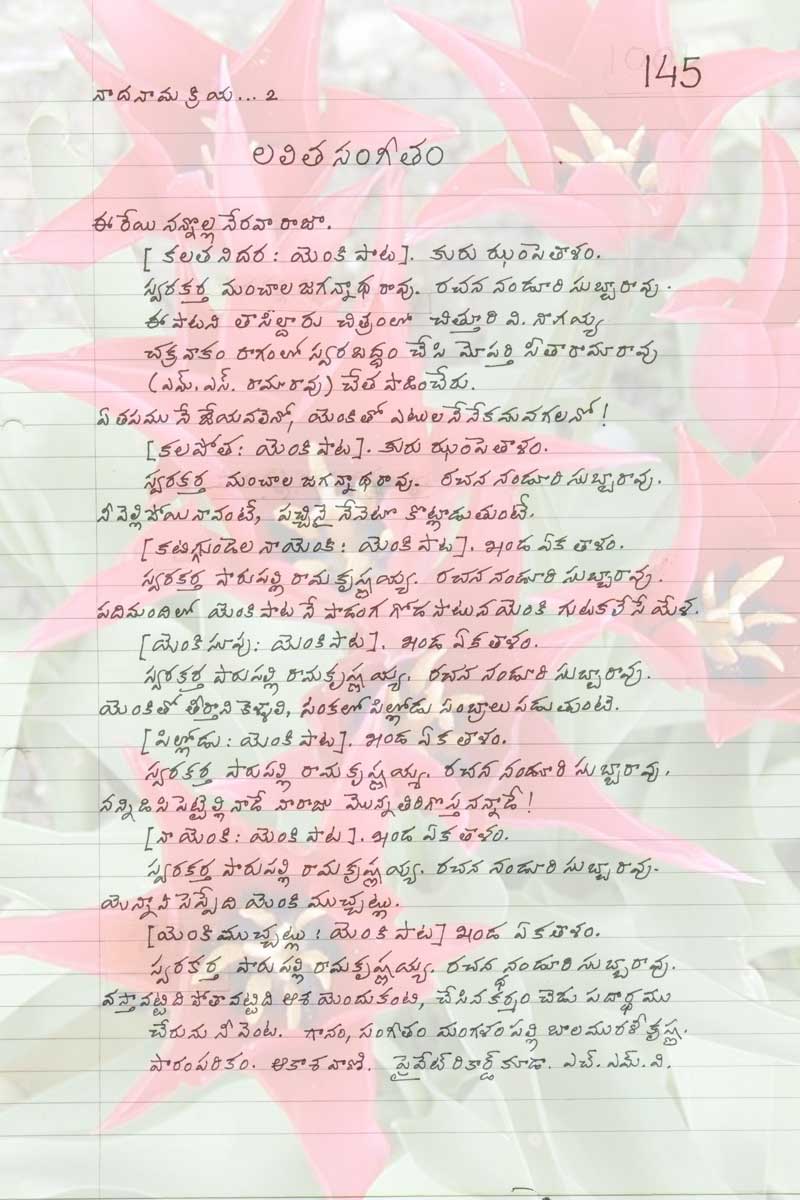 145
నాదనామక్రియ... 2
లలిత సంగీతం
ఈ రేయి నన్నొల్ల నేరవా రాజా.
[ కలత నిదర : యెంకి పాట]. కురు ఝంపెతాళం.
స్వరకర్త మంచాల జగన్నాథ రావు. రచన నండూరి సుబ్బారావు.
ఈ పాటని తాసిల్దారు చిత్రంలో చిత్తూరి వి. నాగయ్య
చక్రవాకం రాగంలో స్వరబద్ధం చేసి మోపర్తి సీతారామారావు
(ఎమ్.ఎస్. రామారావు) చేత పాడించేరు.
ఏ తపము నే జేయవలెనో, యెంకితో ఎటుల నేనేకమవగలనో !
[కలపోత : యెంకి పాట]. కురు ఝంపెతాళం.
స్వరకర్త మంచాల జగన్నాథరావు. రచన నండూరి సుబ్బారావు.
నీ వెల్లిపోయినావంటే, పచ్చినై నేనెటా కొట్లాడుతుంటే.
[కటిగ్గుండెల నాయెంకి : యెంకి పాట]. ఖండ ఏక తాళం.
స్వరకర్త పారుపల్లి రామకృష్ణయ్య. రచన నండూరి సుబ్బారావు.
పదిమందిలో యెంకిపాట నే పాడంగ గోడ పాటున యెంకి గుటకలేసే యేళ.
[యెంకి సూపు : యెంకి పాట]. ఖండ ఏక తాళం.
స్వరకర్త పారుపల్లి రామకృష్ణయ్య. రచన నండూరి సుబ్బారావు.
యెంకితో తీర్తానికెళ్ళాలి, సంకలో పిల్లోడు సంబ్రాలు పడుతుంటె.
[పిల్లోడు : యెంకి పాట]. ఖండ ఏక తాళం.
స్వరకర్త పారుపల్లి రామకృష్ణయ్య. రచన నండూరి సుబ్బారావు.
నన్నిడిసిపెట్టెల్లినాడే నారాజు మొన్న తిరిగొస్తనన్నాడే !
[నా యెంకి : యెంకి పాట]. ఖండ ఏక తాళం.
స్వరకర్త పారుపల్లి రామకృష్ణయ్య. రచన నండూరి సుబ్బారావు.
యెన్నాని సెప్పేది యెంకి ముచ్చట్లు.
[యెంకి ముచ్చట్లు : యెంకి పాట] ఖండ ఏకతాళం.
స్వరకర్త పారుపల్లి రామకృష్ణయ్య. రచన నండూరి సుబ్బారావు.
వస్తా వట్టిది పోతా వట్టిది ఆశ యెందుకంటి, చేసిన కర్మం చెడు పదార్థము
చేరును నీ వెంట. గానం, సంగీతం మంగళంపల్లి బాలమురళీకృష్ణ.
పారంపరికం. ఆకాశవాణి. ప్రైవేట్ రికార్డ్ కూడా. ఎచ్. ఎమ్. వి.